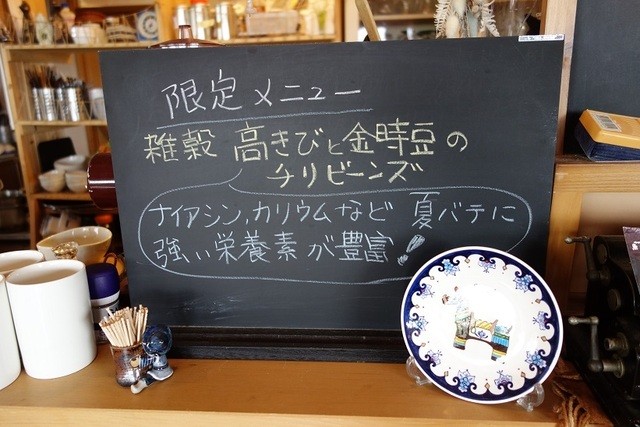 限定メニュー
雑穀 高きびと金時豆の
チリビーンズ
ナイアシン,カリウムなど 夏バテに
強い栄養素が豊富!